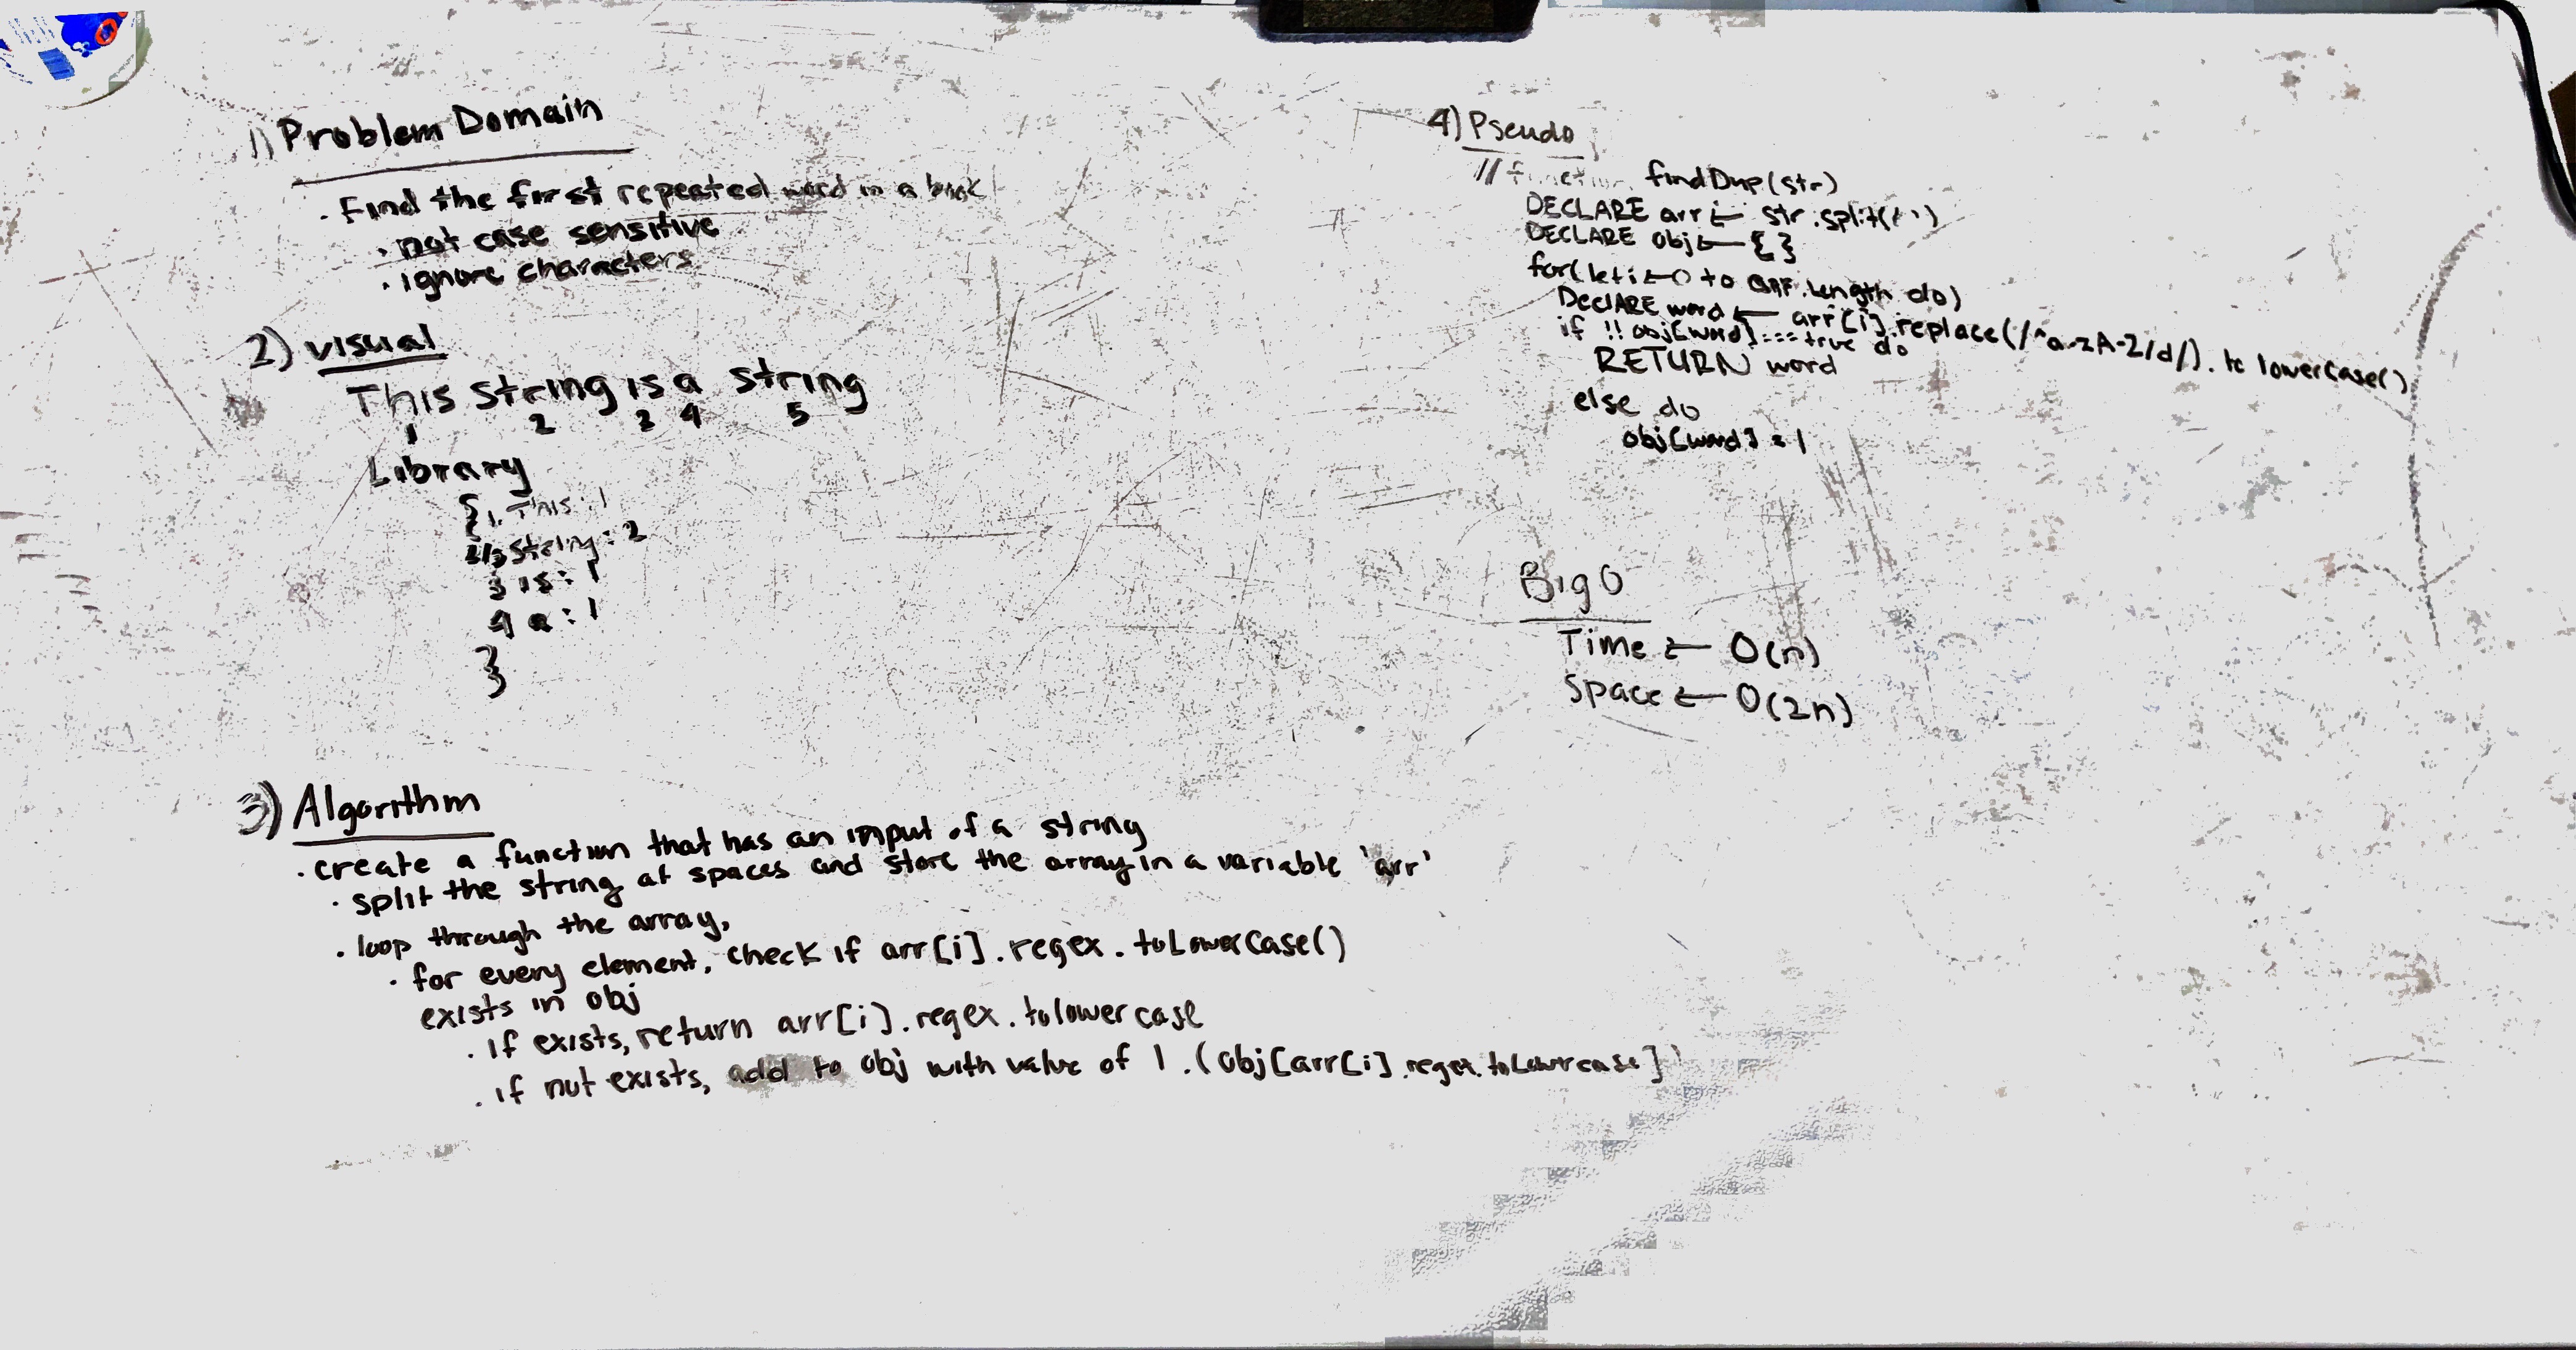 1) Problem Domain
· Find the first repeated word in a book
· not case sensitive
· ignore characters
2) visual
This string is a string
1 2 3 4 5
Library
{ 1. This: 1
2/5 string: 2
3 is: 1
4 a: 1
}
3) Algorithm
· create a function that has an input of a string
· split the string at spaces and store the array in a variable 'arr'
· loop through the array,
· for every element, check if arr[i].regex.toLowerCase()
exists in obj
· if exists, return arr[i].regex.tolowercase
· if not exists, add to obj with value of 1. (obj[arr[i].regex.toLowercase]
4) Pseudo
// function findDup(str)
DECLARE arr ← str.split(' ')
DECLARE obj ← { }
for(let i ← 0 to arr.length do)
DECLARE word ← arr[i].replace(/^a-zA-Z/d/).to lowerCase()
if !! obj[word] === true do
RETURN word
else do
obj[word] = 1
Big O
Time ← O(n)
Space ← O(2n)